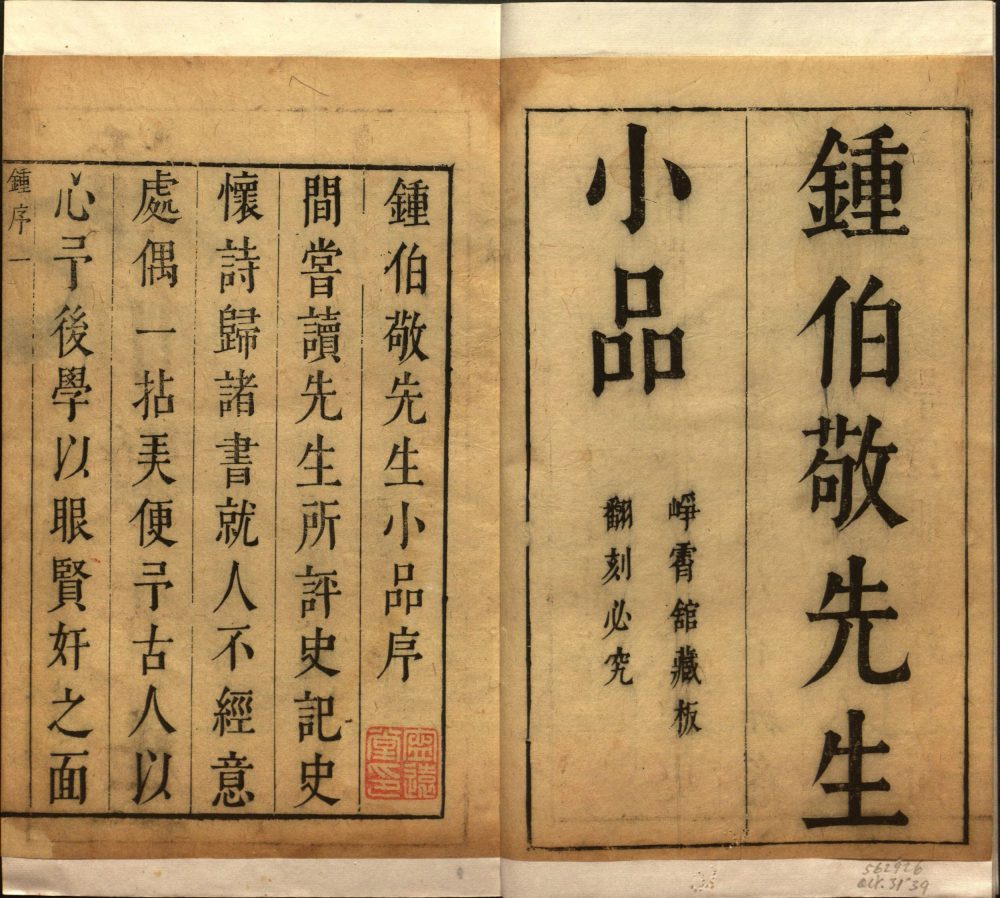 鍾伯敬先生
小品
崢霄舘藏板
翻刻必究
鍾伯敬先生小品序
間甞讀先生所評史記史
懷詩歸諸書就人不經意
處偶一拈美便予古人以
心予後學以眼賢奸之面
鍾序 一
562926